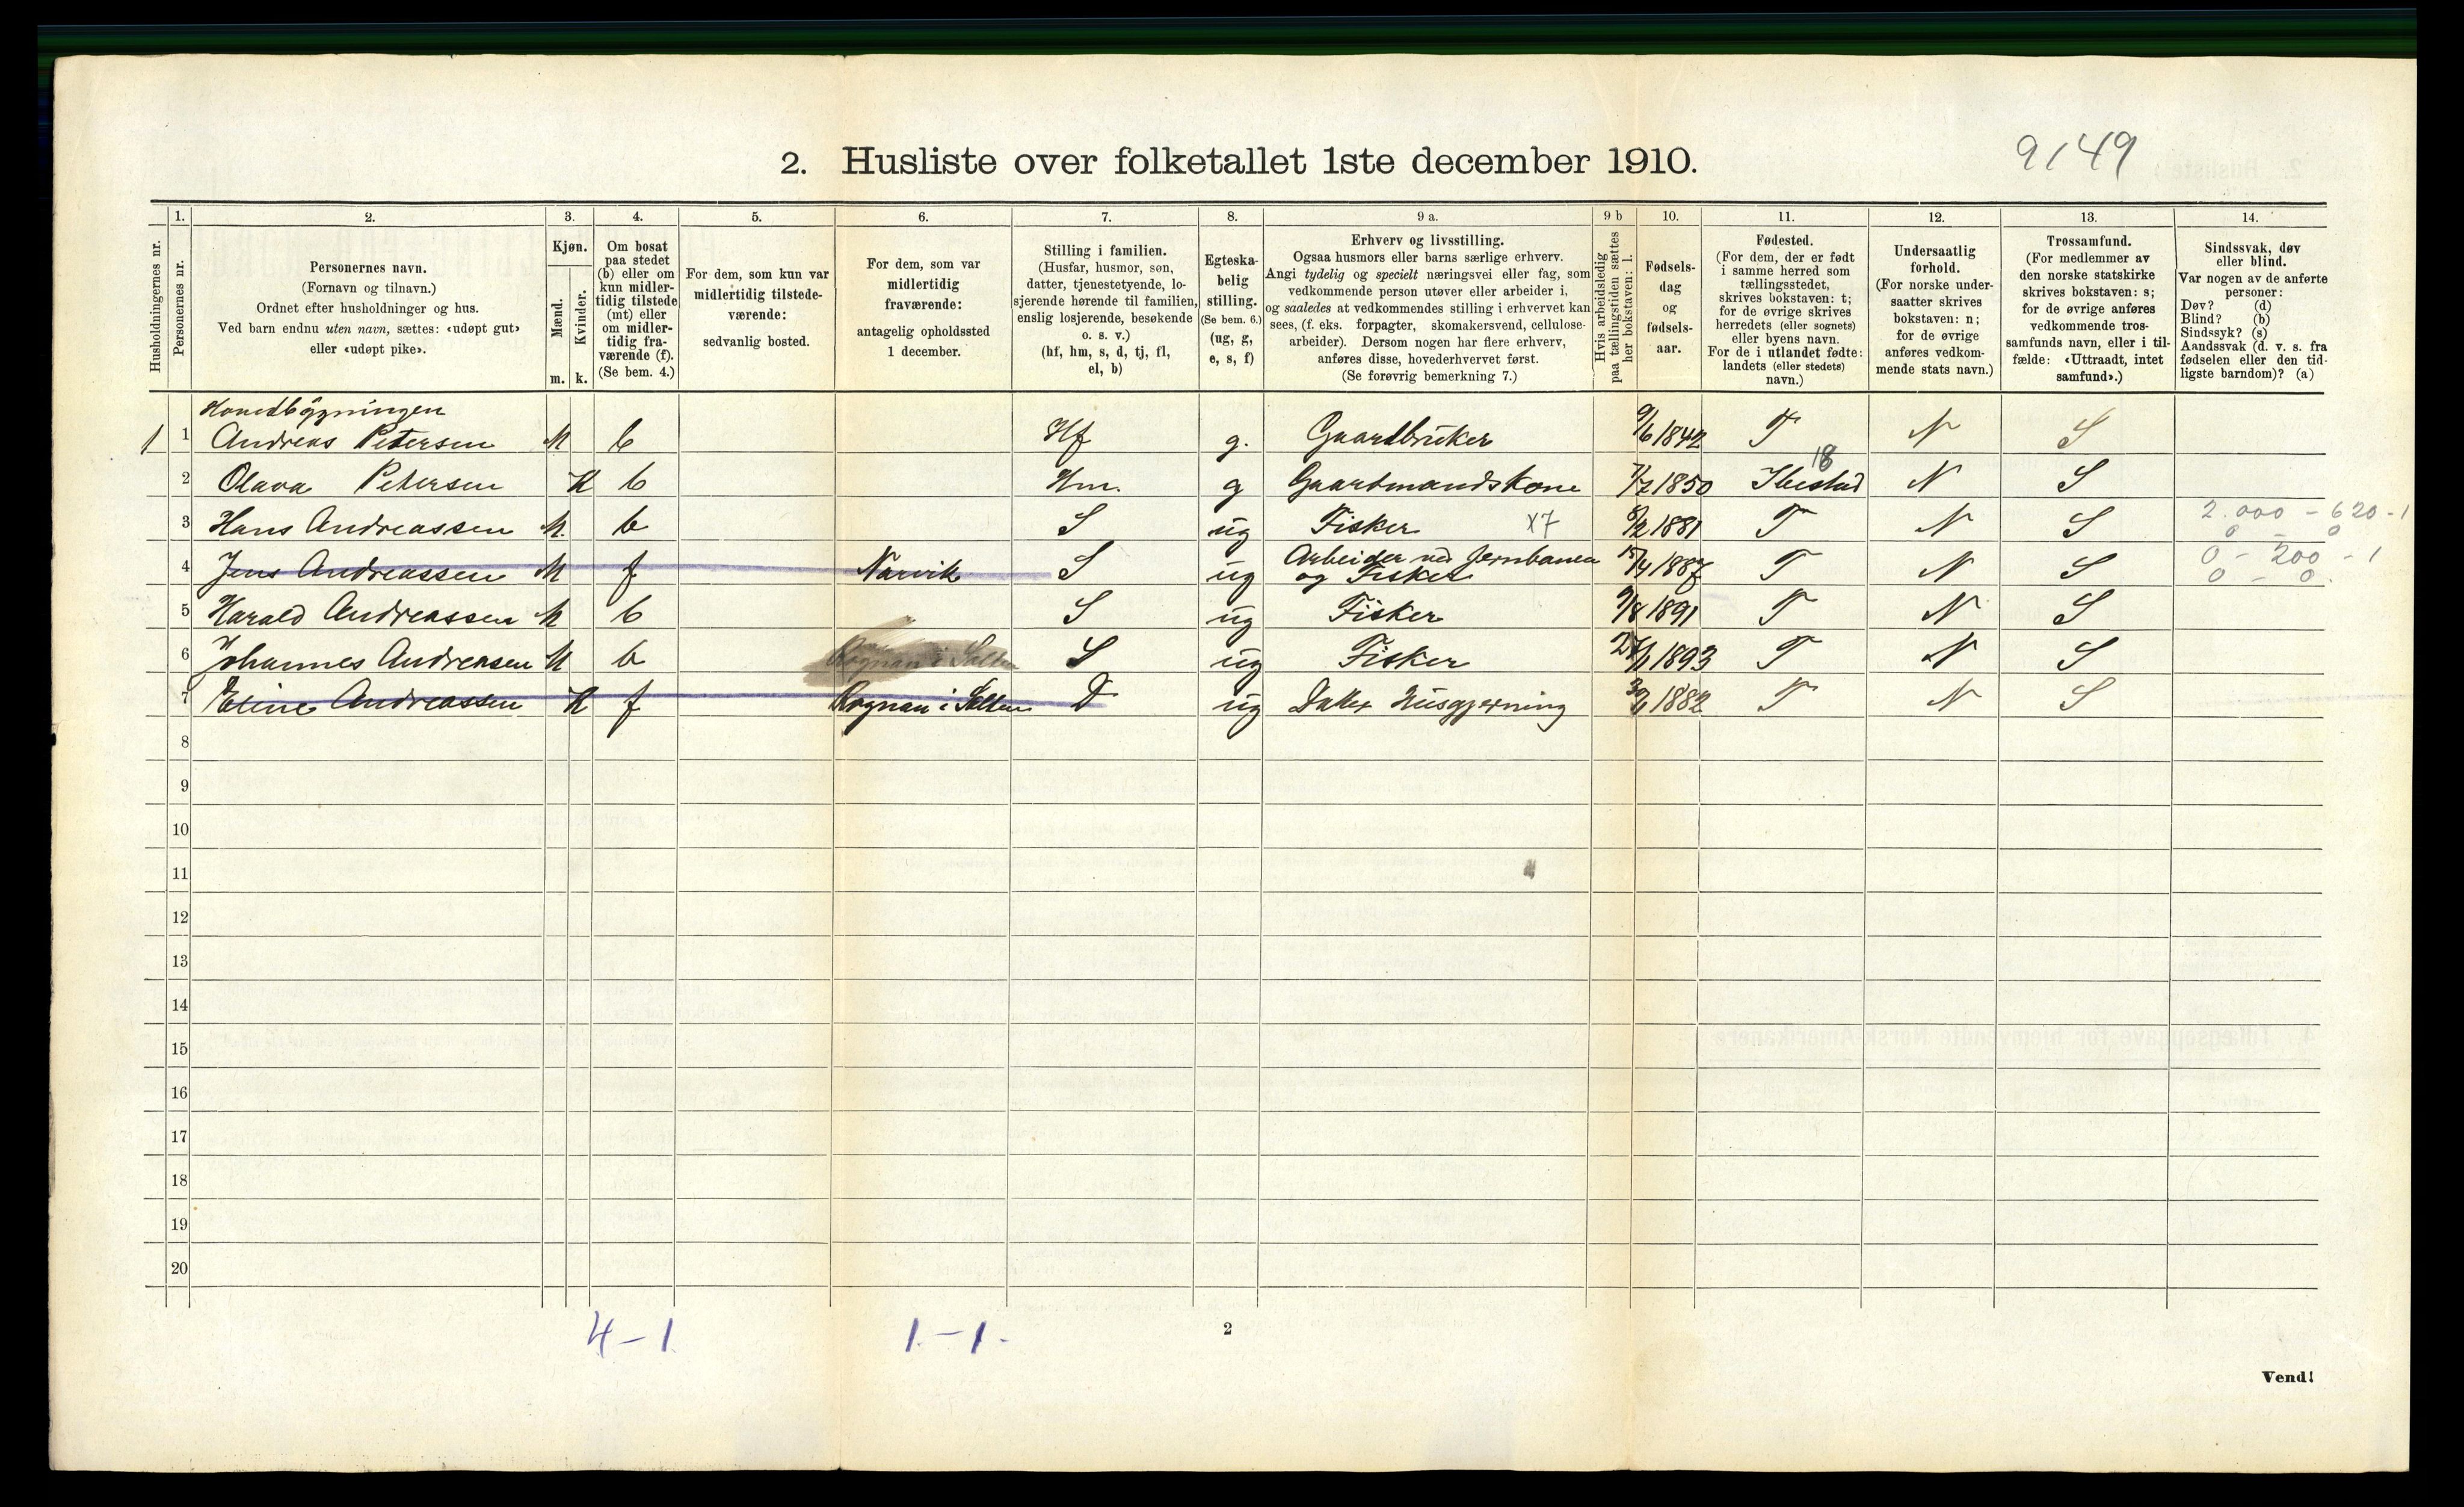 9149
2. Husliste over folketallet 1ste december 1910.
Husholdningernes nr.
1.
Personernes nr.
2.
Personernes navn.
(Fornavn og tilnavn.)
Ordnet efter husholdninger og hus.
Ved barn endnu uten navn, sættes: «udøpt gut»
eller «udøpt pike».
3.
Kjøn.
Mænd.
Kvinder.
m. k.
4.
Om bosat
paa stedet
(b) eller om
kun midler-
tidig tilstede
(mt) eller
om midler-
tidig fra-
værende (f).
(Se bem. 4.)
5.
For dem, som kun var
midlertidig tilstede-
værende:
sedvanlig bosted.
6.
For dem, som var
midlertidig
fraværende:
antagelig opholdssted
1 december.
7.
Stilling i familien.
(Husfar, husmor, søn,
datter, tjenestetyende, lo-
sjerende hørende til familien,
enslig losjerende, besøkende
o. s. v.)
(hf, hm, s, d, tj, fl,
el, b)
8.
Egteska-
belig
stilling.
(Se bem. 6.)
(ug, g,
e, s, f)
9 a.
Erhverv og livsstilling.
Ogsaa husmors eller barns særlige erhverv.
Angi tydelig og specielt næringsvei eller fag, som
vedkommende person utøver eller arbeider i,
og saaledes at vedkommendes stilling i erhvervet kan
sees, (f. eks. forpagter, skomakersvend, cellulose-
arbeider). Dersom nogen har flere erhverv,
anføres disse, hovederhvervet først.
(Se forøvrig bemerkning 7.)
9 b
Hvis arbeidsledig
paa tællingstiden sættes
her bokstaven: l.
10.
Fødsels-
dag
og
fødsels-
aar.
11.
Fødested.
(For dem, der er født
i samme herred som
tællingsstedet,
skrives bokstaven: t;
for de øvrige skrives
herredets (eller sognets)
eller byens navn.
For de i utlandet fødte:
landets (eller stedets)
navn.)
12.
Undersaatlig
forhold.
(For norske under-
saatter skrives
bokstaven: n;
for de øvrige
anføres vedkom-
mende stats navn.)
13.
Trossamfund.
(For medlemmer av
den norske statskirke
skrives bokstaven: s;
for de øvrige anføres
vedkommende tros-
samfunds navn, eller i til-
fælde: «Uttraadt, intet
samfund».)
14.
Sindssvak, døv
eller blind.
Var nogen av de anførte
personer:
Døv? (d)
Blind? (b)
Sindssyk? (s)
Aandssvak (d. v. s. fra
fødselen eller den tid-
ligste barndom)? (a)
Hovedbygningen
1 1 Andreas Petersen M b Hf g. Gaardbruker 9/6 1842 T N S
18
2 Olava Petersen K b Hm. g Gaardmandskone 7/7 1850 Ibestad N S
3 Hans Andreassen M. b S ug Fisker X7 8/2 1881 T N S 2.000 - 620 - 1
0 - 0
4 Jens Andreassen M f Narvik S ug Arbeider ved Jernbanen 1887 T N S 0 - 200 - 1
og Fisker 0 - 0.
5 Harald Andreassen M b S ug Fisker 9/8 1891 T N S
6 Johannes Andreasen M b Rognan i Salten S ug Fisker 1893 T N S
7 Eline Andreassen K f Rognan i Salten D ug Datter Husgjerning 1882 T N S
8
9
10
11
12
13
14
15
16
17
18
19
20
4 - 1 1. - 1.
2
Vend!